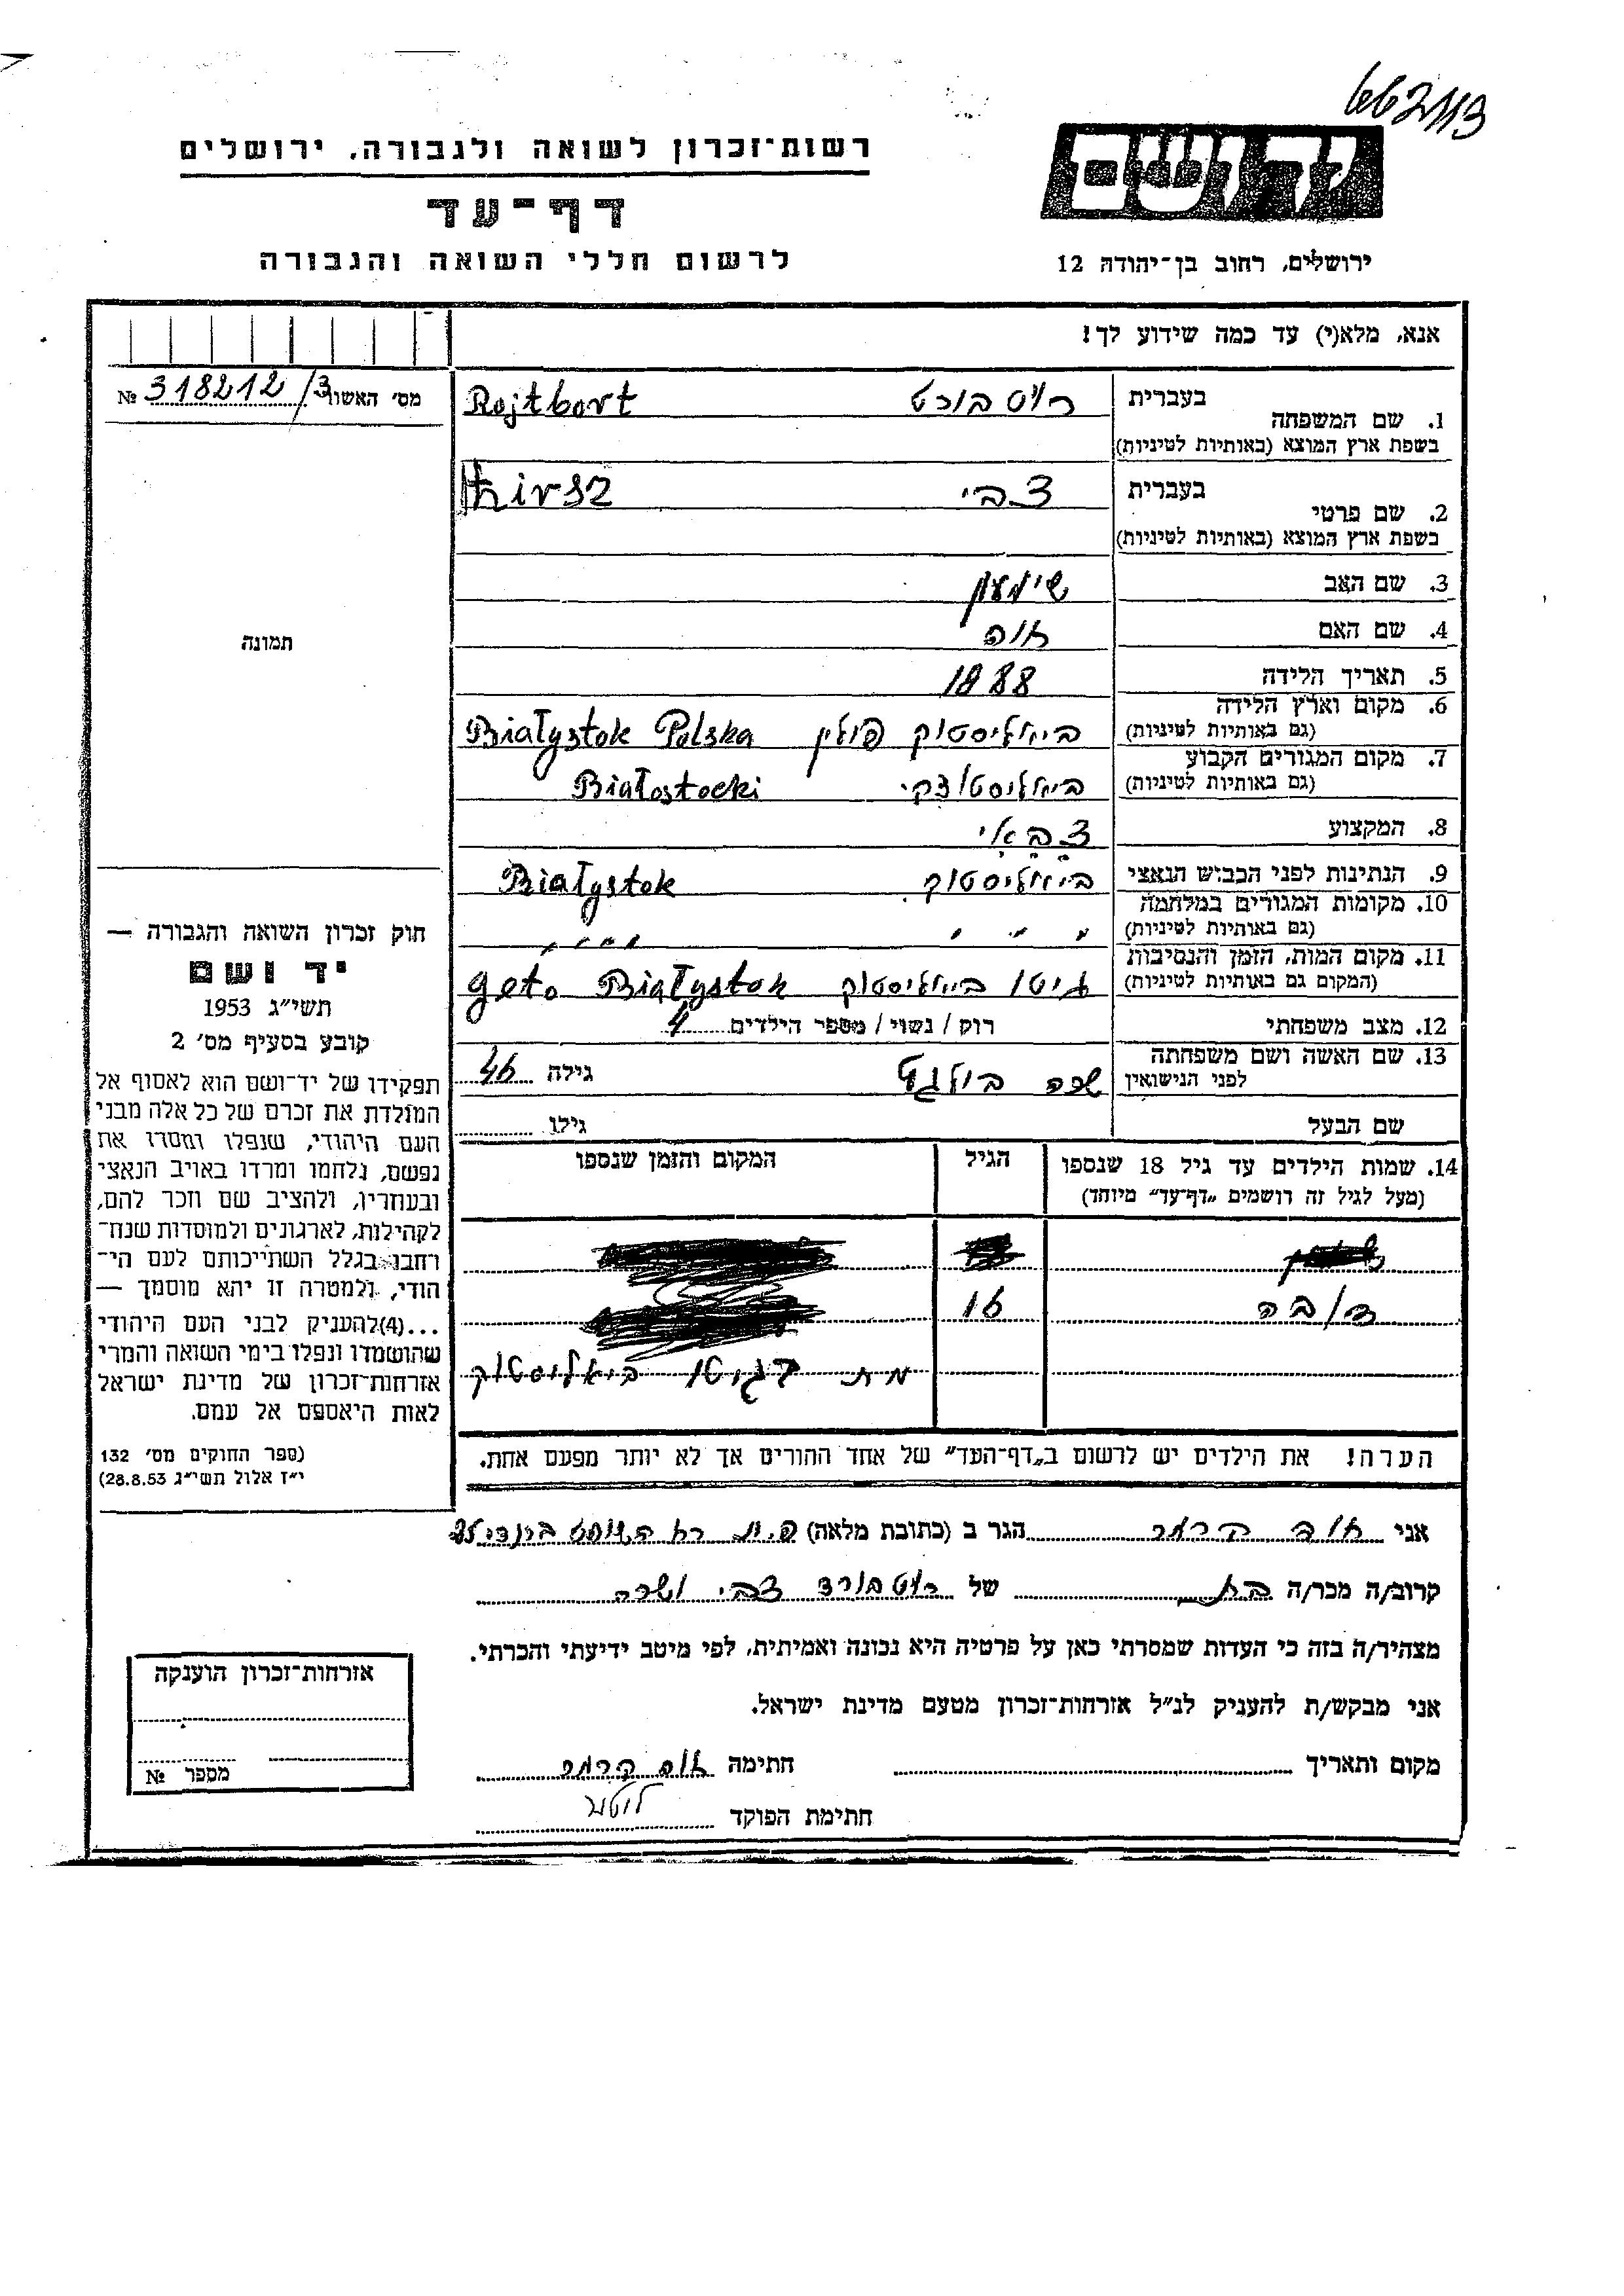 662113
רשות־זכרון לשואה ולגבורה, ירושלים
דף־עד
לרשום חללי השואה והגבורה
ידושם
ירושלים, רחוב בן־יהודה 12
אנא, מלא(י) עד כמה שידוע לך!
מס׳ האשור 318212/3 №
1. שם המשפחה בעברית רויטבורט Rojtbort
בשפת ארץ המוצא (באותיות לטיניות)
2. שם פרטי בעברית צבי Hirsz
בשפת ארץ המוצא (באותיות לטיניות)
3. שם האב שימעון
4. שם האם
5. תאריך הלידה 1888
6. מקום וארץ הלידה ביאליסטוק פולין Białystok Polska
(גם באותיות לטיניות)
7. מקום המגורים הקבוע ביאליסטוצקי Białostocki
(גם באותיות לטיניות)
8. המקצוע צבאי
9. הנתינות לפני הכבוש הנאצי ביאליסטוק Białystok
10. מקומות המגורים במלחמה
(גם באותיות לטיניות) " " "
11. מקום המות, הזמן והנסיבות גיטו ביאליסטוק geto Białystok
(המקום גם באותיות לטיניות)
12. מצב משפחתי רוק / נשוי / מספר הילדים 4
13. שם האשה ושם משפחתה
לפני הנישואין שרה גילה 46
שם הבעל גילו
14. שמות הילדים עד גיל 18 שנספו הגיל המקום והזמן שנספו
(מעל לגיל זה רושמים "דף־עד" מיוחד)
דובה 16
מת בגיטו ביאליסטוק
הערה! את הילדים יש לרשום ב„דף־העד" של אחד ההורים אך לא יותר מפעם אחת.
תמונה
חוק זכרון השואה והגבורה —
יד ושם
תשי״ג 1953
קובע בסעיף מס׳ 2
תפקידו של יד־ושם הוא לאסוף אל
המולדת את זכרם של כל אלה מבני
העם היהודי, שנפלו ומסרו את
נפשם, נלחמו ומרדו באויב הנאצי
ובעוזריו, ולהציב שם וזכר להם,
לקהילות, לארגונים ולמוסדות שנח־
רבו בגלל השתייכותם לעם הי־
הודי, ולמטרה זו יהא מוסמך —
...(4) להעניק לבני העם היהודי
שהושמדו ונפלו בימי השואה והמרי
אזרחות־זכרון של מדינת ישראל
לאות היאספם אל עמם.
(ספר החוקים מס׳ 132
י״ז אלול תשי״ג 28.8.53)
אני קרמר הגר ב (כתובת מלאה)
קרוב/ה מכר/ה בת של רויטבורד צבי ושרה
מצהיר/ה בזה כי העדות שמסרתי כאן על פרטיה היא נכונה ואמיתית, לפי מיטב ידיעתי והכרתי.
אני מבקש/ת להעניק לנ״ל אזרחות־זכרון מטעם מדינת ישראל.
מקום ותאריך חתימה קרמר
חתימת הפוקד
אזרחות־זכרון הוענקה
מספר №